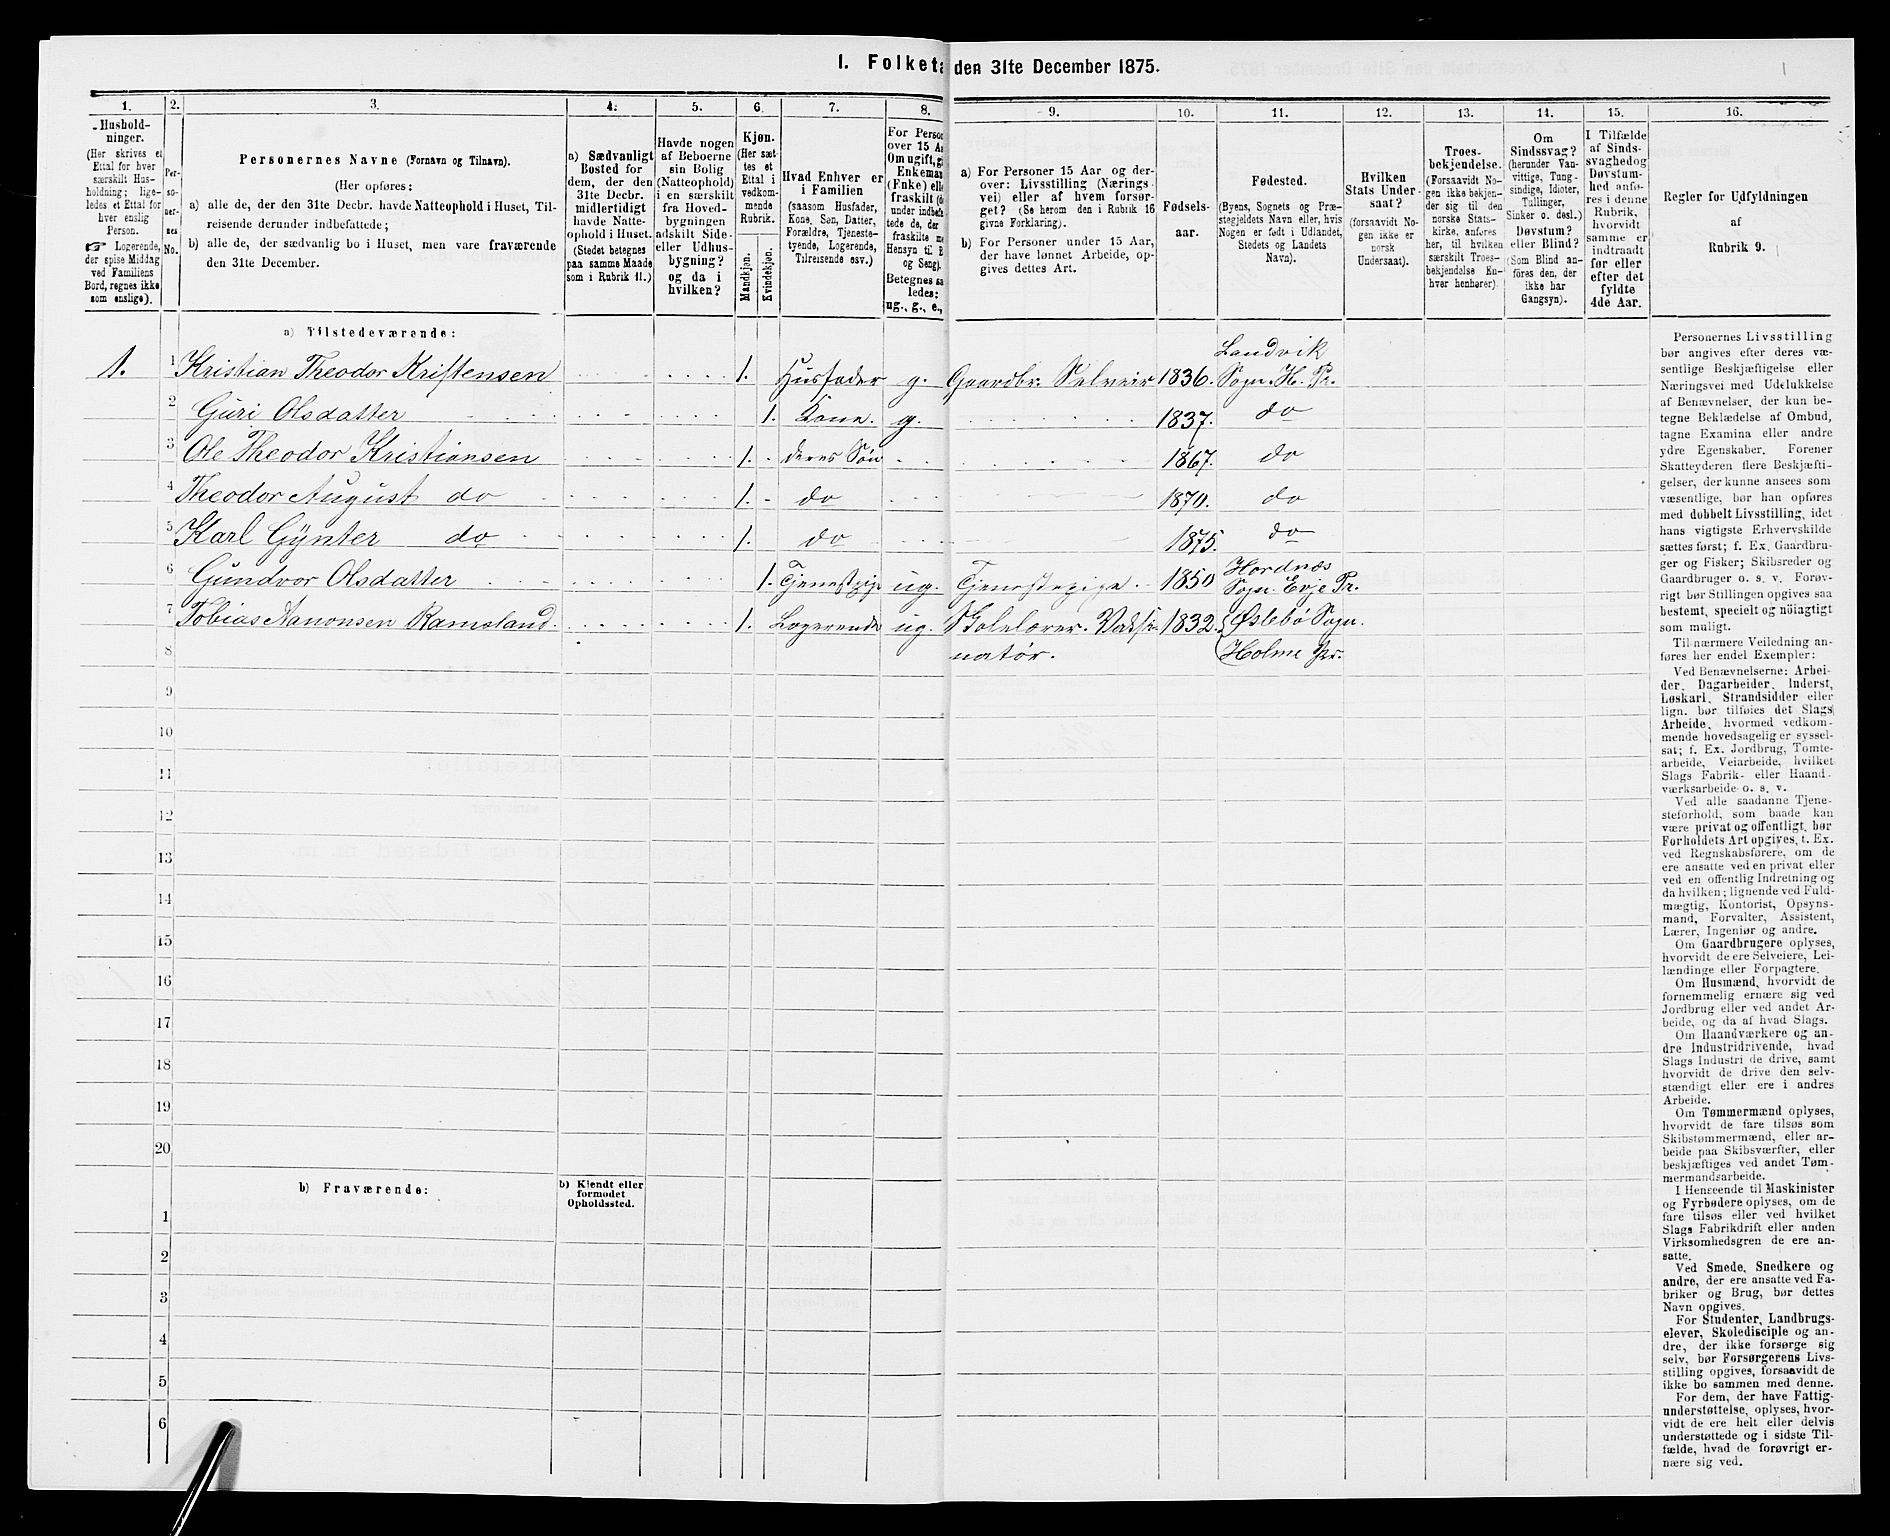 1. Folketa den 31te December 1875.
1. 2. 3. 4. 5. 6. 7. 8. 9. 10. 11. 12. 13. 14. 15. 16.
Hushold-
ninger.
(Her skrives et
Ettal for hver
særskilt Hus-
holdning; lige-
ledes et Ettal for
hver enslig
Person.
☞ Logerende,
der spise Middag
ved Familiens
Bord, regnes ikke
som enslige).
Per-
so-
ner-
nes
No.
Personernes Navne (Fornavn og Tilnavn).
(Her opføres:
a) alle de, der den 31te Decbr. havde Natteophold i Huset, Til-
reisende derunder indbefattede;
b) alle de, der sædvanlig bo i Huset, men vare fraværende
den 31te December.
a) Sædvanligt
Bosted for
dem, der den
31te Decbr.
midlertidigt
havde Natte-
ophold i Huset.
(Stedet betegnes
paa samme Maade
som i Rubrik 11.)
Havde nogen
af Beboerne
sin Bolig
(Natteophold)
i en særskilt
fra Hoved-
bygningen
adskilt Side-
eller Udhus-
bygning?
og da i
hvilken?
Kjøn.
(Her sæt-
tes et
Ettal i
vedkom-
mende
Rubrik.
Mandkjøn.
Kvindekjøn.
Hvad Enhver er
i Familien
(saasom Husfader,
Kone, Søn, Datter,
Forældre, Tjeneste-
tyende, Logerende,
Tilreisende osv.)
For Person
over 15 Aa
Om ugift, g
Enkeman
(Enke) ell
fraskilt (d
under indbef
tede de, der
fraskilte m
Hensyn til B
og Seng).
Betegnes sa
ledes:
ug., g., e.,
a) For Personer 15 Aar og der-
over: Livsstilling (Nærings-
vei) eller af hvem forsør-
get? (Se herom den i Rubrik 16
givne Forklaring).
b) For Personer under 15 Aar,
der have lønnet Arbeide, op-
gives dettes Art.
Fødsels-
aar.
Fødested.
(Byens, Sognets og Præ-
stegjeldets Navn eller, hvis
Nogen er født i Udlandet,
Stedets og Landets
Navn).
Hvilken
Stats Under-
saat?
(forsaavidt No-
gen ikke er
norsk
Undersaat).
Troes-
bekjendelse.
(Forsaavidt No-
gen ikke bekjen-
der sig til den
norske Stats-
kirke, anføres
her, til hvilken
særskilt Troes-
bekjendelse En-
hver henhører).
Om
Sindssvag?
(herunder Van-
vittige, Tung-
sindige, Idioter,
Tullinger,
Sinker o. desl.)
Døvstum?
eller Blind?
(Som Blind an-
føres den, der
ikke har
Gangsyn).
I Tilfælde
af Sinds-
svaghed og
Døvstum-
hed anfø-
res i denne
Rubrik,
hvorvidt
samme er
indtraadt
før eller
efter det
fyldte
4de Aar.
Regler for Udfyldningen
af
Rubrik 9.
a) Tilstedeværende:
Landvik
1. 1 Kristian Theodor Kristensen 1. Husfader g. Gaardbr. Selveier 1836. Sogn. H. Pr.
2 Guri Olsdatter 1. Kone g. 1837. do
3 Ole Theodor Kristiansen 1. deres Søn 1867. do
4 Theodor August do 1. do 1870. do
5 Karl Gynter do 1. do 1875. do
Hordnæs
6 Gundvor Olsdatter 1. Tjenestpige ug. Tjenestepige 1850 Sogn. Evje Pr.
7 Tobias Aanonsen Ramsland 1. Logerende ug. Skolelærer. Vaksi- 1832. Øslebö Sogn.
8 natör. Holme Pr.
9
10
11
12
13
14
15
16
17
18
19
20
b) Fraværende:
b) Kjendt eller
formodet
Opholdssted.
1
2
3
4
5
6
Personernes Livsstilling
bør angives efter deres væ-
sentlige Beskjæftigelse eller
Næringsvei med Udelukkelse
af Benævnelser, der kun be-
tegne Beklædelse af Ombud,
tagne Examina eller andre
ydre Egenskaber. Forener
Skatteyderen flere Beskjæfti-
gelser, der kunne ansees som
væsentlige, bør han opføres
med dobbelt Livsstilling, idet
hans vigtigste Erhvervskilde
sættes først; f. Ex. Gaardbru-
ger og Fisker; Skibsreder og
Gaardbruger o. s. v. Forøv-
rigt bør Stillingen opgives saa
bestemt, specielt og nöiagtigt
som muligt.
Til nærmere Veiledning an-
føres her endel Exempler:
Ved Benævnelserne: Arbei-
der, Dagarbeider, Inderst,
Løskarl, Strandsidder eller
lign. bør tilføies det Slags
Arbeide, hvormed vedkom-
mende hovedsagelig er syssel-
sat; f. Ex. Jordbrug, Tomte-
arbeide, Veiarbeide, hvilket
Slags Fabrik- eller Haand-
værksarbeide o. s. v.
Ved alle saadanne Tjene-
steforhold, som baade kan
være privat og offentligt, bør
Forholdets Art opgives, t. Ex.
ved Regnskabsførere, om de
ere ansatte ved en privat eller
ved en offentlig Indretning og
da hvilken; lignende ved Fuld-
mægtig, Kontorist, Opsyns-
mand, Forvalter, Assistent,
Lærer, Ingeniør og andre.
Om Gaardbrugere oplyses,
hvorvidt de ere Selveiere, Lei-
lændinge eller Forpagtere.
Om Husmænd, hvorvidt de
fornemmelig ernære sig ved
Jordbrug eller ved andet Ar-
beide, og da af hvad Slags.
Om Haandværkere og an-
dre Industridrivende, hvad
Slags Industri de drive, samt
hvorvidt de drive den selv-
stændigt eller ere i andres
Arbeide.
Om Tømmermænd oplyses,
hvorvidt de fare tilsøs som
Skibstømmermænd, eller ar-
beide paa Skibsværfter, eller
beskjæftiges ved andet Tøm-
mermandsarbeide.
I Henseende til Maskinister
og Fyrbødere oplyses, om de
fare tilsøs eller ved hvilket
Slags Fabrikdrift eller anden
Virksomhedsgren de ere an-
satte.
Ved Smede, Snedkere og
andre, der ere ansatte ved Fa-
briker og Brug, bør dettes
Navn opgives.
For Studenter, Landbrugs-
elever, Skoledisciple og an-
dre, der ikke forsørge sig
selv, bør Forsørgerens Livs-
stilling opgives, forsaavidt de
ikke bo sammen med denne.
For dem, der have Fattig-
understøttelse, oplyses, hvor-
vidt de ere helt eller delvis
understøttede og i sidste Til-
fælde, hvad de forøvrigt er-
nære sig ved.